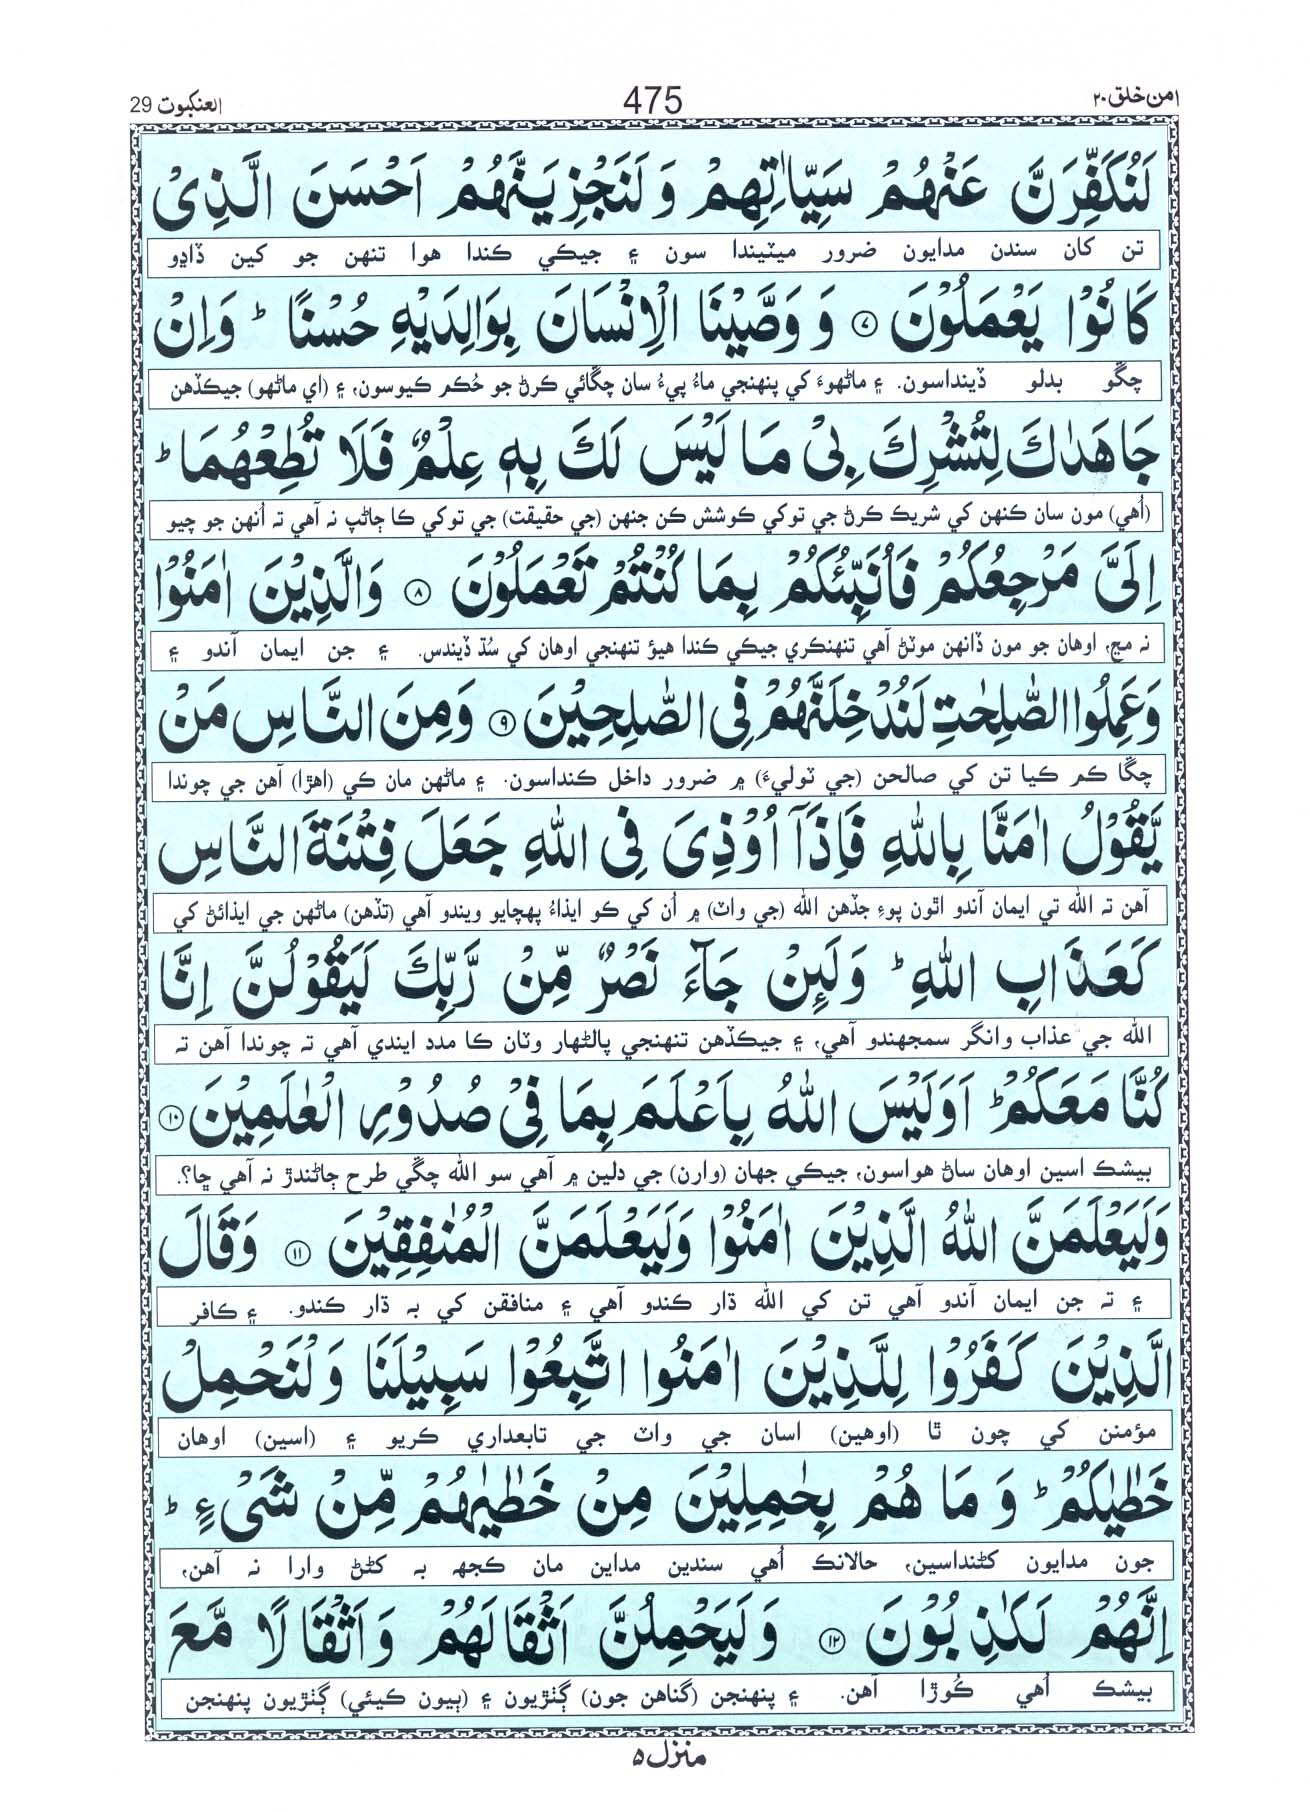 امن خلق ۲۰
475
العنکبوت 29
لَنُكَفِّرَنَّ عَنْهُمْ سَيِّاٰتِهِمْ وَ لَنَجْزِيَنَّهُمْ اَحْسَنَ الَّذِيْ
تن کان سندن مدايون ضرور ميٽيندا سون ۽ جيڪي ڪندا هوا تنهن جو کين ڏاڍو
كَانُوْا يَعْمَلُوْنَ ۷ وَ وَصَّيْنَا الْاِنْسَانَ بِوَالِدَيْهِ حُسْنًا ؕ وَاِنْ
چڱو بدلو ڏينداسون. ۽ ماڻهوءَ کي پنهنجي ماءُ پيءُ سان چڱائي ڪرڻ جو حُڪم ڪيوسون، ۽ (اي ماڻهو) جيڪڏهن
جَاهَدٰكَ لِتُشْرِكَ بِيْ مَا لَيْسَ لَكَ بِهٖ عِلْمٌ فَلَا تُطِعْهُمَا ؕ
(اُهي) مون سان ڪنهن کي شريڪ ڪرڻ جي توکي ڪوشش ڪن جنهن (جي حقيقت) جي توکي ڪا ڄاڻپ نہ آهي تہ اُنهن جو چيو
اِلَيَّ مَرْجِعُكُمْ فَاُنَبِّئُكُمْ بِمَا كُنْتُمْ تَعْمَلُوْنَ ۸ وَالَّذِيْنَ اٰمَنُوْا
نہ مڃ، اوهان جو مون ڏانهن موٽڻ آهي تنهنڪري جيڪي ڪندا هيؤ تنهنجي اوهان کي سُڌ ڏيندس. ۽ جن ايمان آندو ۽
وَعَمِلُوا الصّٰلِحٰتِ لَنُدْخِلَنَّهُمْ فِي الصّٰلِحِيْنَ ۹ وَمِنَ النَّاسِ مَنْ
چڱا ڪم ڪيا تن کي صالحن (جي ٽوليءَ) ۾ ضرور داخل ڪنداسون. ۽ ماڻهن مان ڪي (اهڙا) آهن جي چوندا
يَّقُوْلُ اٰمَنَّا بِاللّٰهِ فَاِذَاۤ اُوْذِيَ فِي اللّٰهِ جَعَلَ فِتْنَةَ النَّاسِ
آهن تہ الله تي ايمان آندو اٿون پوءِ جڏهن الله (جي واٽ) ۾ اُن کي ڪو ايذاءُ پهچايو ويندو آهي (تڏهن) ماڻهن جي ايذائڻ کي
كَعَذَابِ اللّٰهِ ؕ وَلَئِنْ جَآءَ نَصْرٌ مِّنْ رَّبِّكَ لَيَقُوْلُنَّ اِنَّا
الله جي عذاب وانگر سمجهندو آهي، ۽ جيڪڏهن تنهنجي پالڻهار وٽان ڪا مدد ايندي آهي تہ چوندا آهن تہ
كُنَّا مَعَكُمْ ؕ اَوَلَيْسَ اللّٰهُ بِاَعْلَمَ بِمَا فِيْ صُدُوْرِ الْعٰلَمِيْنَ ۱۰
بيشڪ اسين اوهان ساڻ هواسون، جيڪي جهان (وارن) جي دلين ۾ آهي سو الله چڱي طرح ڄاڻندڙ نہ آهي ڇا؟.
وَلَيَعْلَمَنَّ اللّٰهُ الَّذِيْنَ اٰمَنُوْا وَلَيَعْلَمَنَّ الْمُنٰفِقِيْنَ ۱۱ وَقَالَ
۽ تہ جن ايمان آندو آهي تن کي الله ڌار ڪندو آهي ۽ منافقن کي بہ ڌار ڪندو. ۽ ڪافر
الَّذِيْنَ كَفَرُوْا لِلَّذِيْنَ اٰمَنُوا اتَّبِعُوْا سَبِيْلَنَا وَلْنَحْمِلْ
مؤمنن کي چون ٿا (اوهين) اسان جي واٽ جي تابعداري ڪريو ۽ (اسين) اوهان
خَطٰيٰكُمْ ؕ وَ مَا هُمْ بِحٰمِلِيْنَ مِنْ خَطٰيٰهُمْ مِّنْ شَيْءٍ ؕ
جون مدايون کڻنداسين، حالانڪ اُهي سندين مداين مان ڪجهہ بہ کڻڻ وارا نہ آهن،
اِنَّهُمْ لَكٰذِبُوْنَ ۱۲ وَلَيَحْمِلُنَّ اَثْقَالَهُمْ وَاَثْقَالًا مَّعَ
بيشڪ اُهي ڪُوڙا آهن. ۽ پنهنجن (گناهن جون) ڳٺڙيون ۽ (ٻيون ڪيئي) ڳٺڙيون پنهنجن
منزل ۵